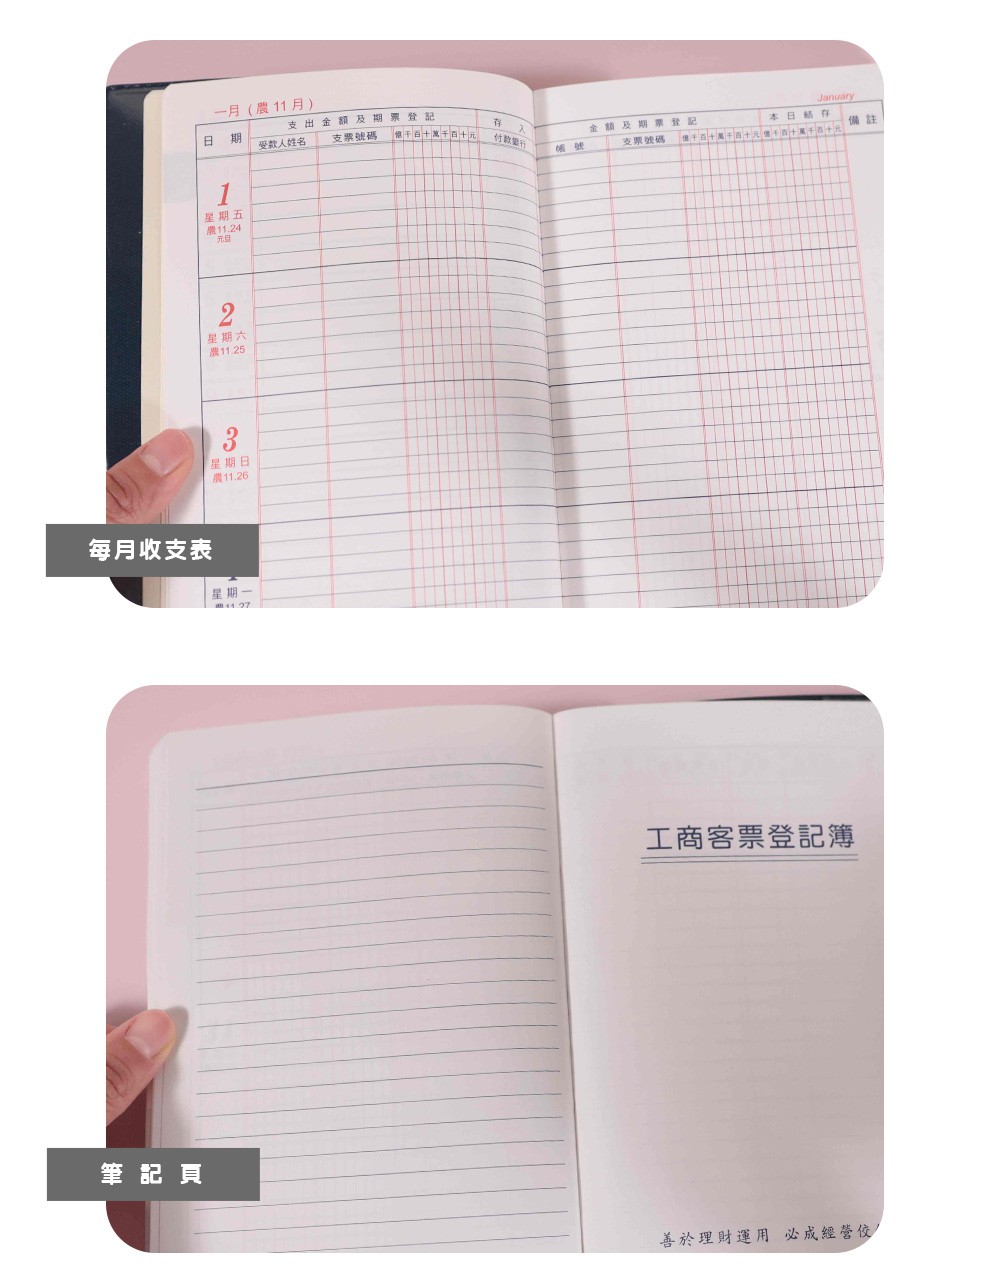 一月 (農 11 月)
January
日 期
支 出 金 額 及 期 票 登 記
存 入
金 額 及 期 票 登 記
本 日 結 存
備 註
受款人姓名
支票號碼
億千百十萬千百十元
付款銀行
帳 號
支票號碼
億千百十萬千百十元
億千百十萬千百十元
1
星 期 五
農11.24
元旦
2
星 期 六
農11.25
3
星 期 日
農11.26
星 期 一
農11.27
每月收支表
工商客票登記簿
善於理財運用 必成經營佼
筆 記 頁